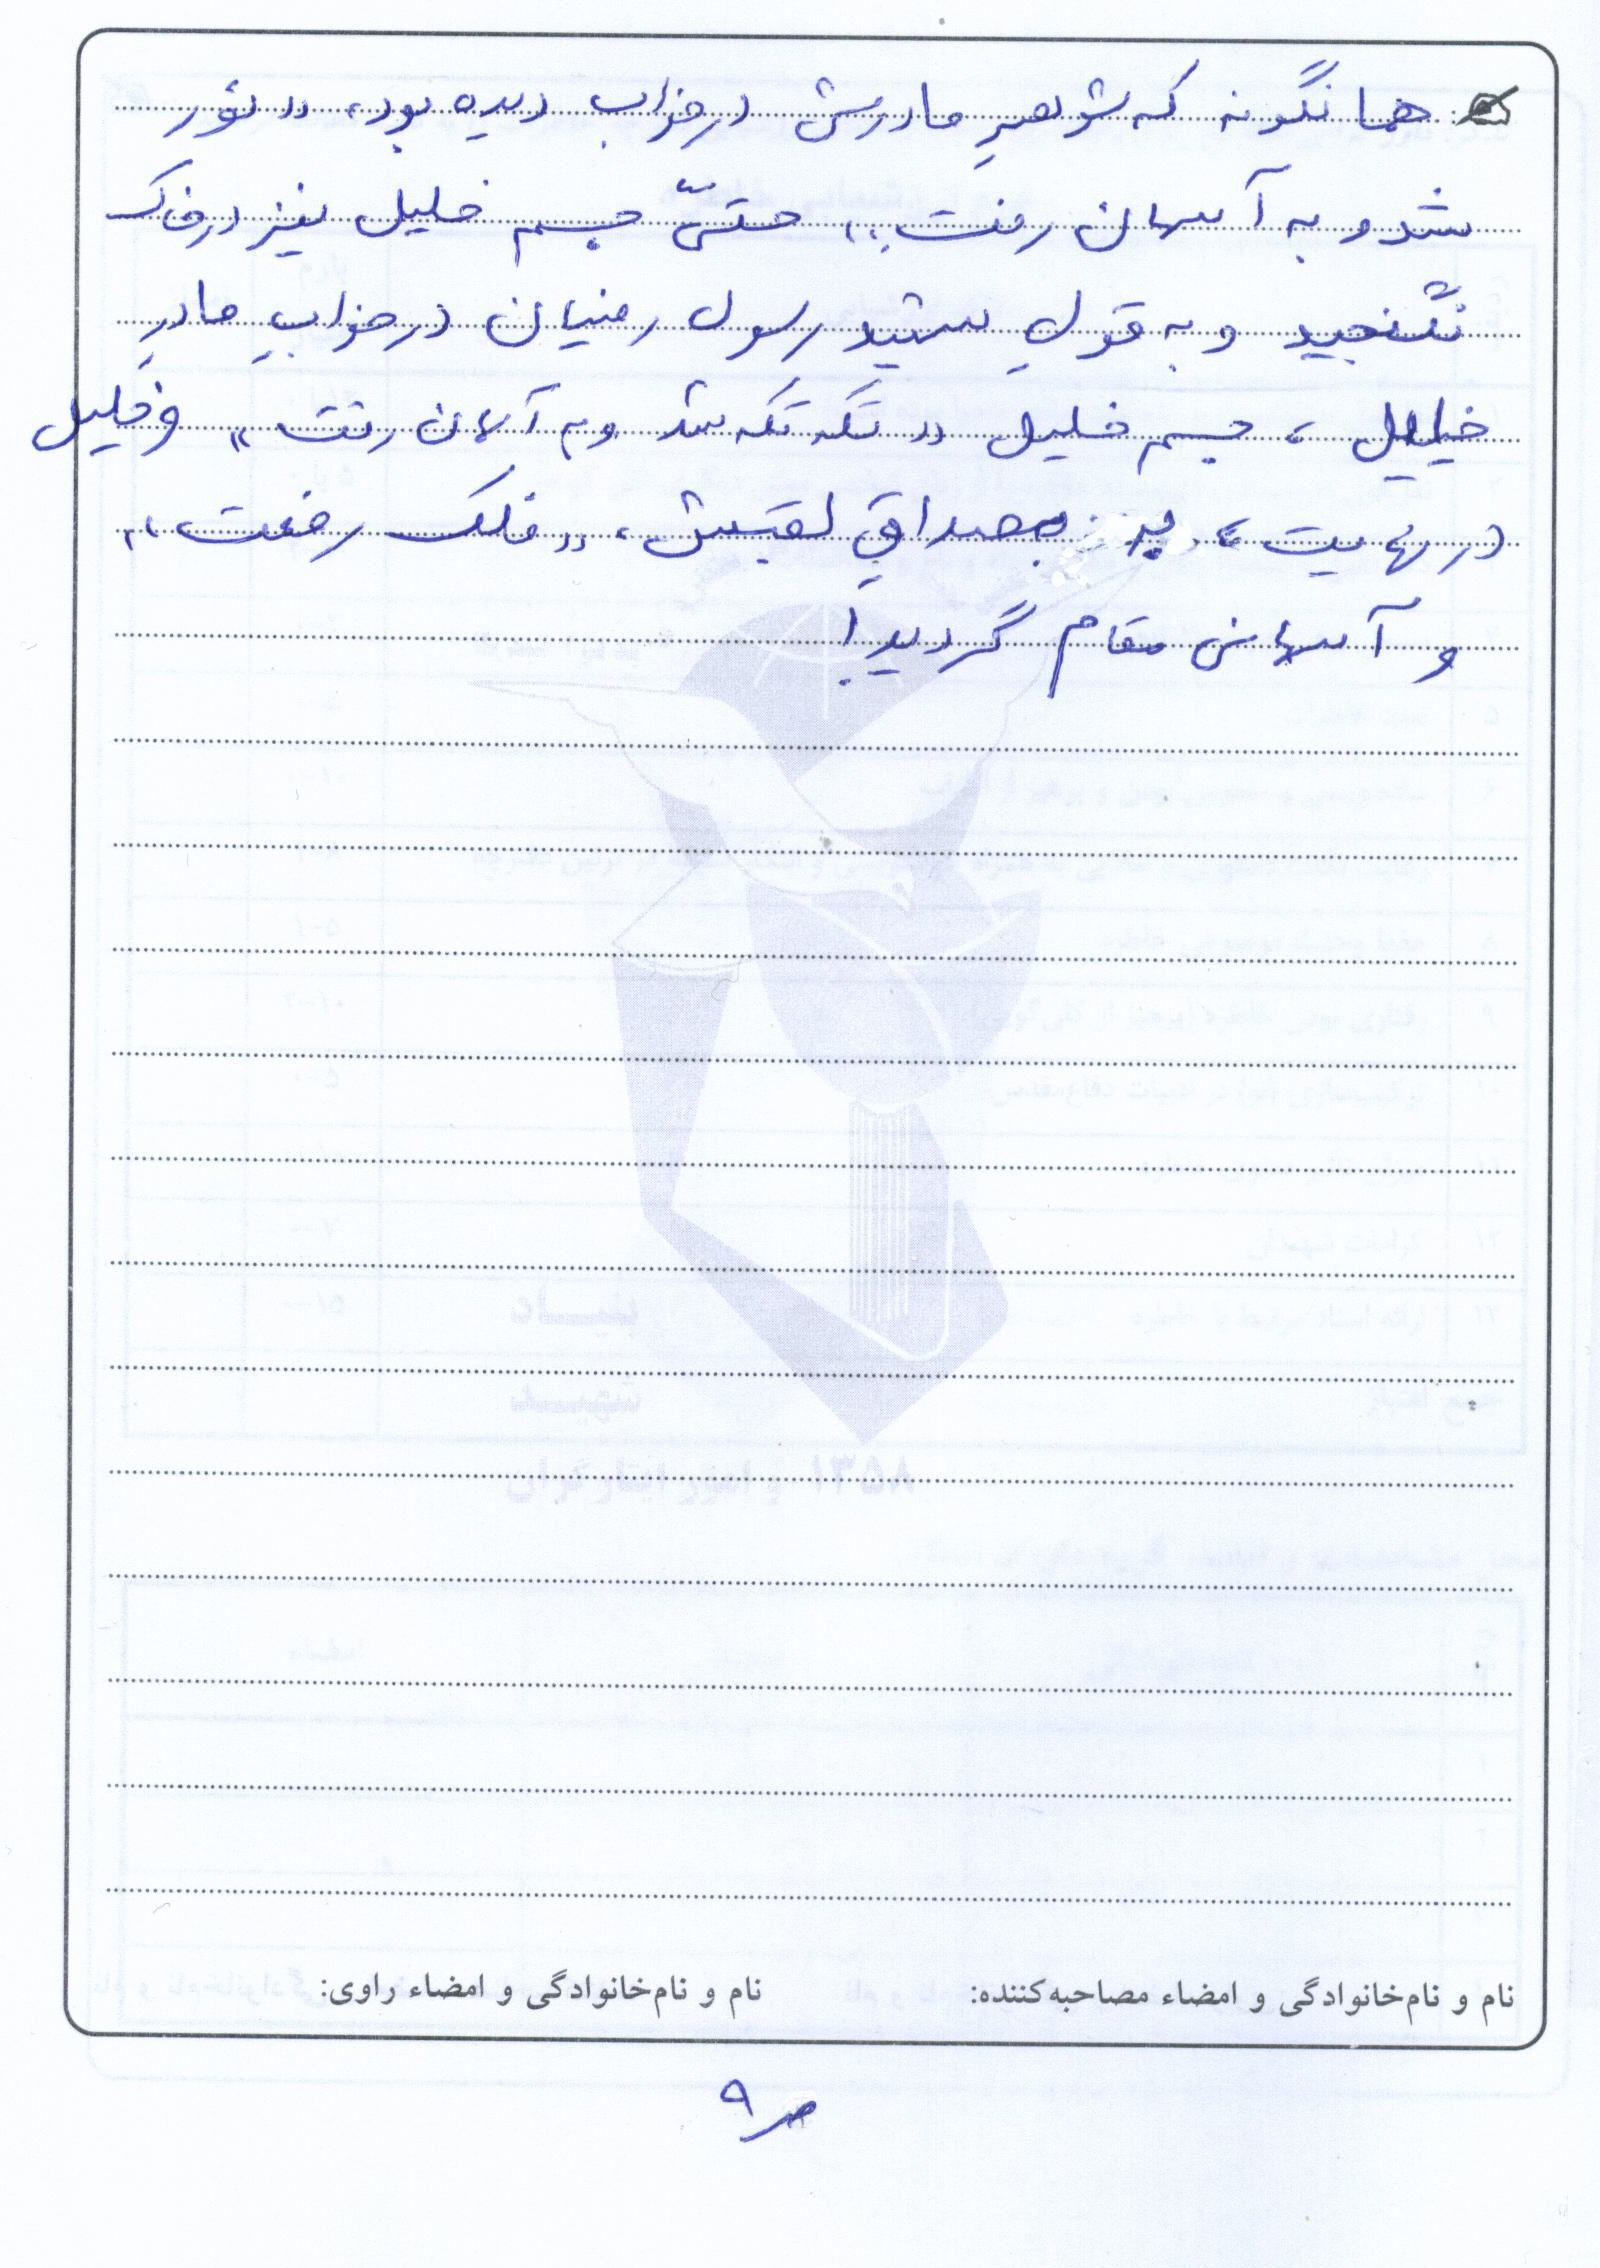 همانگونه که شوهرِ مادرش در خواب دیده بود، «نور
شد و به آسمان رفت»، حتّی جسم خلیل نیز در خاک
نگنجید و به قولِ شهید رسول رضیان در خوابِ مادرِ
خلیل، جسم خلیل «تکه تکه شد و به آسمان رفت» و خلیل
در نهایت، به مصداقِ لقبش، «فلک رفعت»
و آسمانی مقام گردید!
نام و نام‌خانوادگی و امضاء مصاحبه‌کننده: نام و نام‌خانوادگی و امضاء راوی:
ص ۹